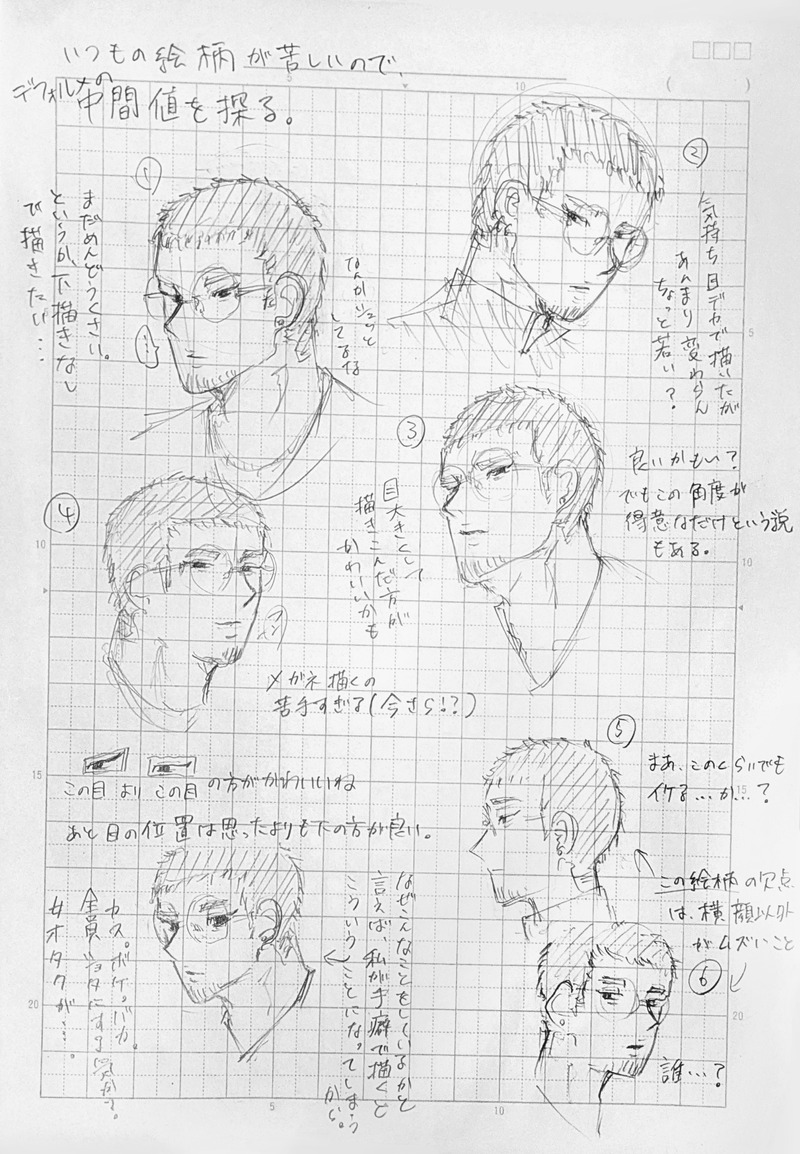 いつもの絵柄が苦しいので、
デフォルメの
中間値を探る。
①
まだめんどうくさい。
というか、下描きなし
で描きたい…
なんかシュッと
してるな
②
気持ち目デカで描いたが
あんまり変わらん
ちょっと若い?
③
良いかもい?
でもこの角度が
得意なだけという説
もある。
④
目大きくして
描きこんだ方が
かわいいかも
メガネ描くの
苦手すぎる(今さら!?)
この目 より この目 の方がかわいいね
あと目の位置は思ったよりも下の方が良い。
⑤
まあ、このくらいでも
イケる…か…?
この絵柄の欠点
は、横顔以外
がムズいこと
⑥
誰…?
なぜこんなことをしているかと
言えば、私が手癖で描くと
こういうことになってしまう
から。
カス。ボケ。バカ。
全員ショタにする気か?
オタクが…。
5
10
5
10
10
15
15
20
20
5
10